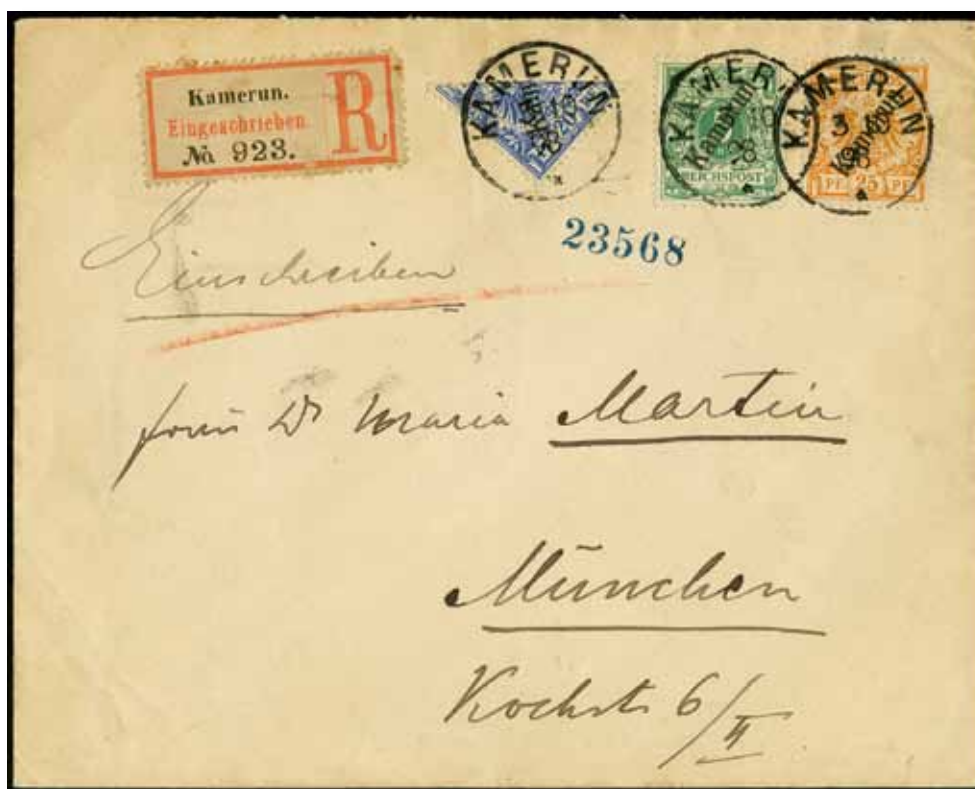 Kamerun.
Eingeschrieben.
No 923.
R
KAMERUN
20
KAMERUN
Kamerun
98
REICHSPOST
KAMERUN
3 10
98
Kamerun
PF 25 PF
23568
Einschreiben
Frau Dr Maria Martin
München
Kochstr 6/II